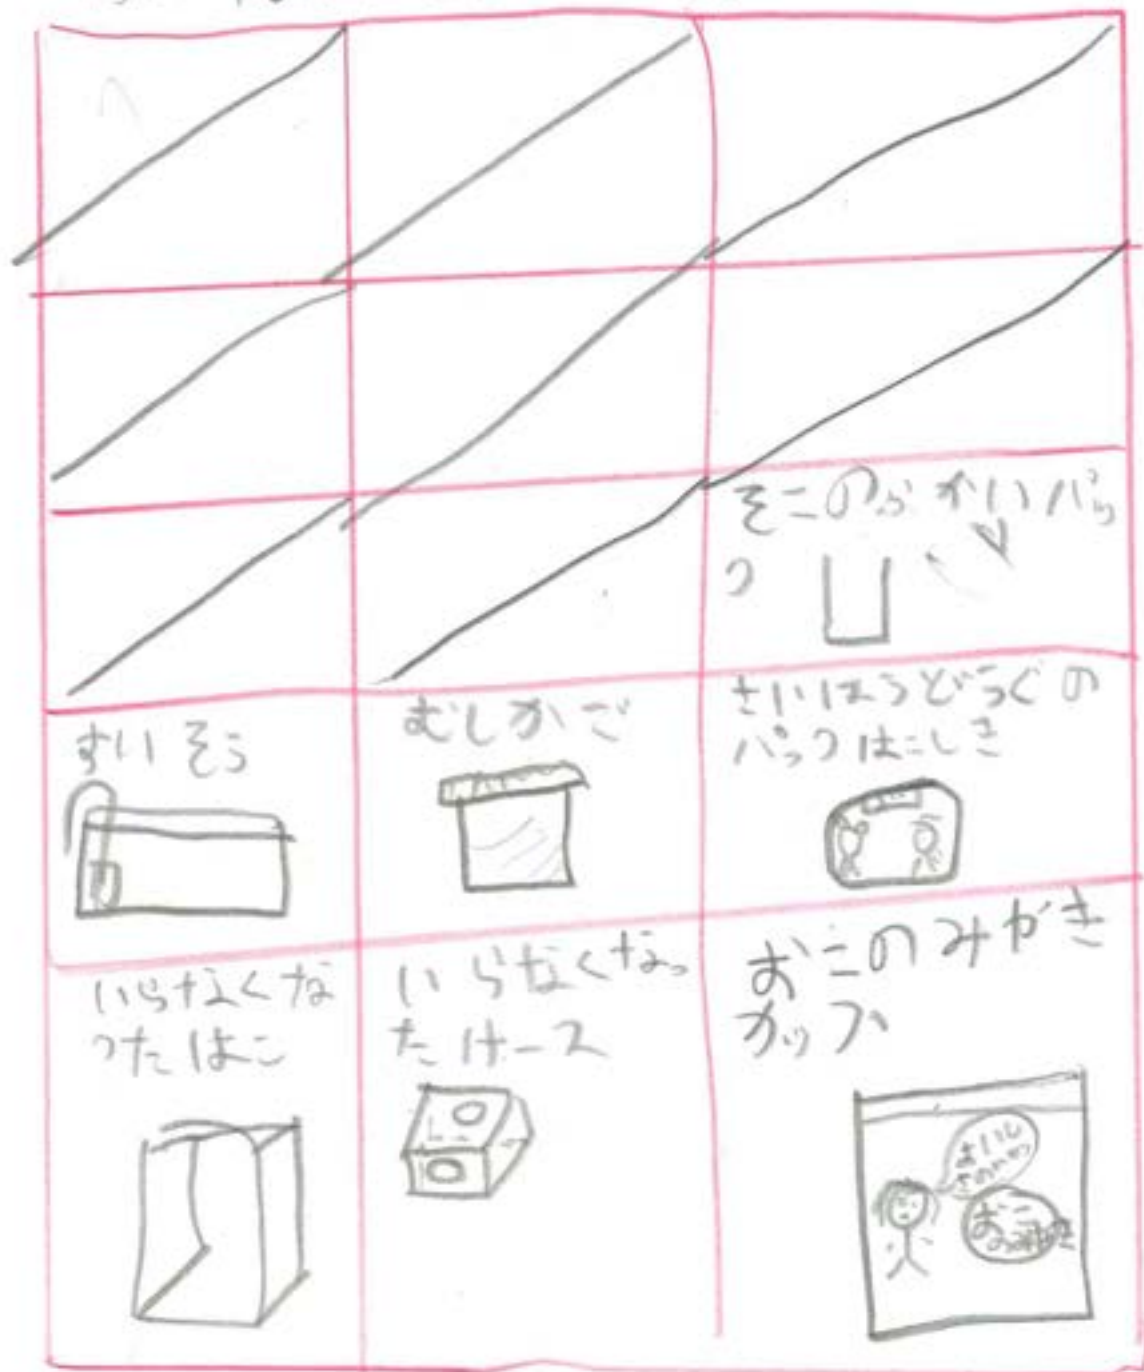 そこのふかいパッ
ク
すいそう
むしかご
さいほうどうぐの
パックはこしき
いらなくな
ったはこ
いらなくなっ
たケース
おこのみがき
カップ
おいし
さのひみつ